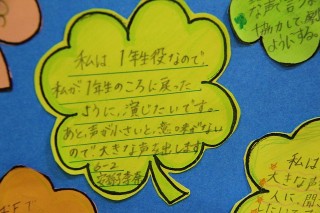 私は1年生役なので、
私が1年生のころに戻った
ように、演じたいです。
あと、声が小さいと、意味がない
ので、大きな声を出します
6-2
な声で言うか
ようにする。
私は
大きな声
人に、聞
たいで